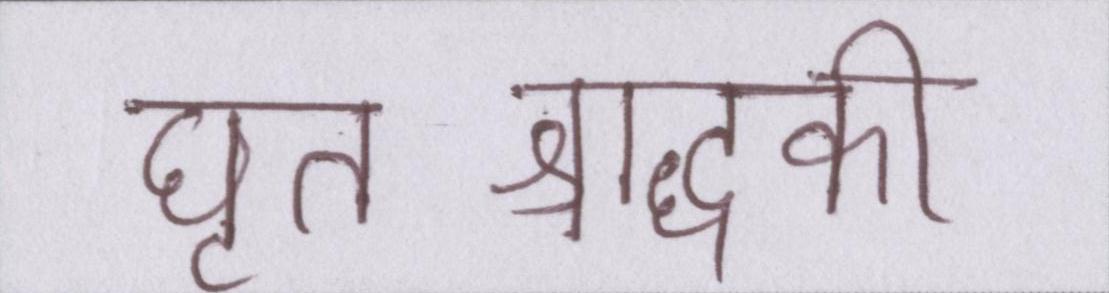 घृत श्राद्धकी